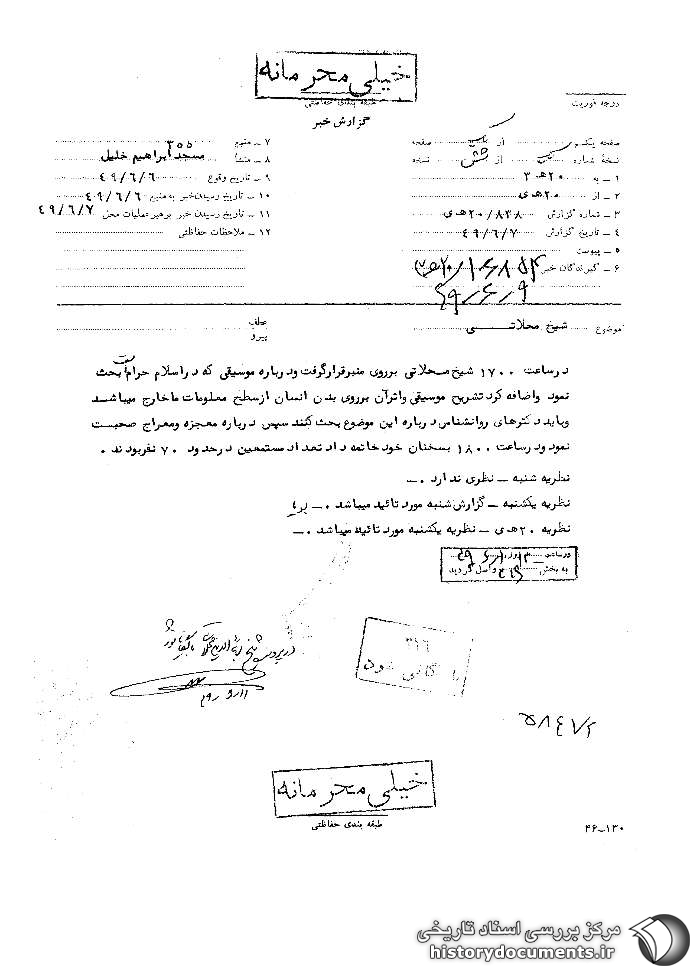 خیلی محرمانه
طبقه بندی حفاظتی
درجه فوریت
گزارش خبر
صفحه یکم از یک صفحه
نسخه شماره از شش نسخه
۱ ـ به ۲۰ هـ ۳
۲ ـ از ۲۰ هـ ی
۳ ـ شماره گزارش ۲۰/۸۳۸ هـ ی
۴ ـ تاریخ گزارش ۴۹/۶/۷
۵ ـ پیوست
۶ ـ گیرندگان خبر
۴۹ـ۶ـ۹
۷ ـ منبع ۳۵۵
۸ ـ منشأ مسجد ابراهیم خلیل
۹ ـ تاریخ وقوع ۴۹/۶/۶
۱۰ ـ تاریخ رسیدن خبر به منبع ۴۹/۶/۶
۱۱ ـ تاریخ رسیدن خبر به رهبر عملیات محل ۴۹/۶/۷
۱۲ ـ ملاحظات حفاظتی
موضوع شیخ محلاتی
عطف
پیرو
در ساعت ۱۷۰۰ شیخ محلاتی برروی منبر قرار گرفت ودرباره موسیقی که در اسلام حرام است بحث
نمود واضافه کرد تشریح موسیقی واثرآن برروی بدن انسان ازسطح معلومات ما خارج میباشد
وباید دکترهای روانشناس درباره این موضوع بحث کنند سپس درباره معجزه ومعراج صحبت
نمود ودر ساعت ۱۸۰۰ بسخنان خود خاتمه داد تعداد مستمعین درحدود ۷۰ نفربودند .
نظریه شنبه ـ نظری ندارد .ـ
نظریه یکشنبه ـ گزارش شنبه مورد تائید میباشد .ـ
نظریه ۲۰ هـ ی ـ نظریه یکشنبه مورد تائید میباشد .ـ
در ساعت روز
به بخش واصل گردید
۳۱۶
بایگانی شود
خیلی محرمانه
طبقه بندی حفاظتی
۴۶ـ۱۳۰
مرکز بررسی اسناد تاریخی
historydocuments.ir